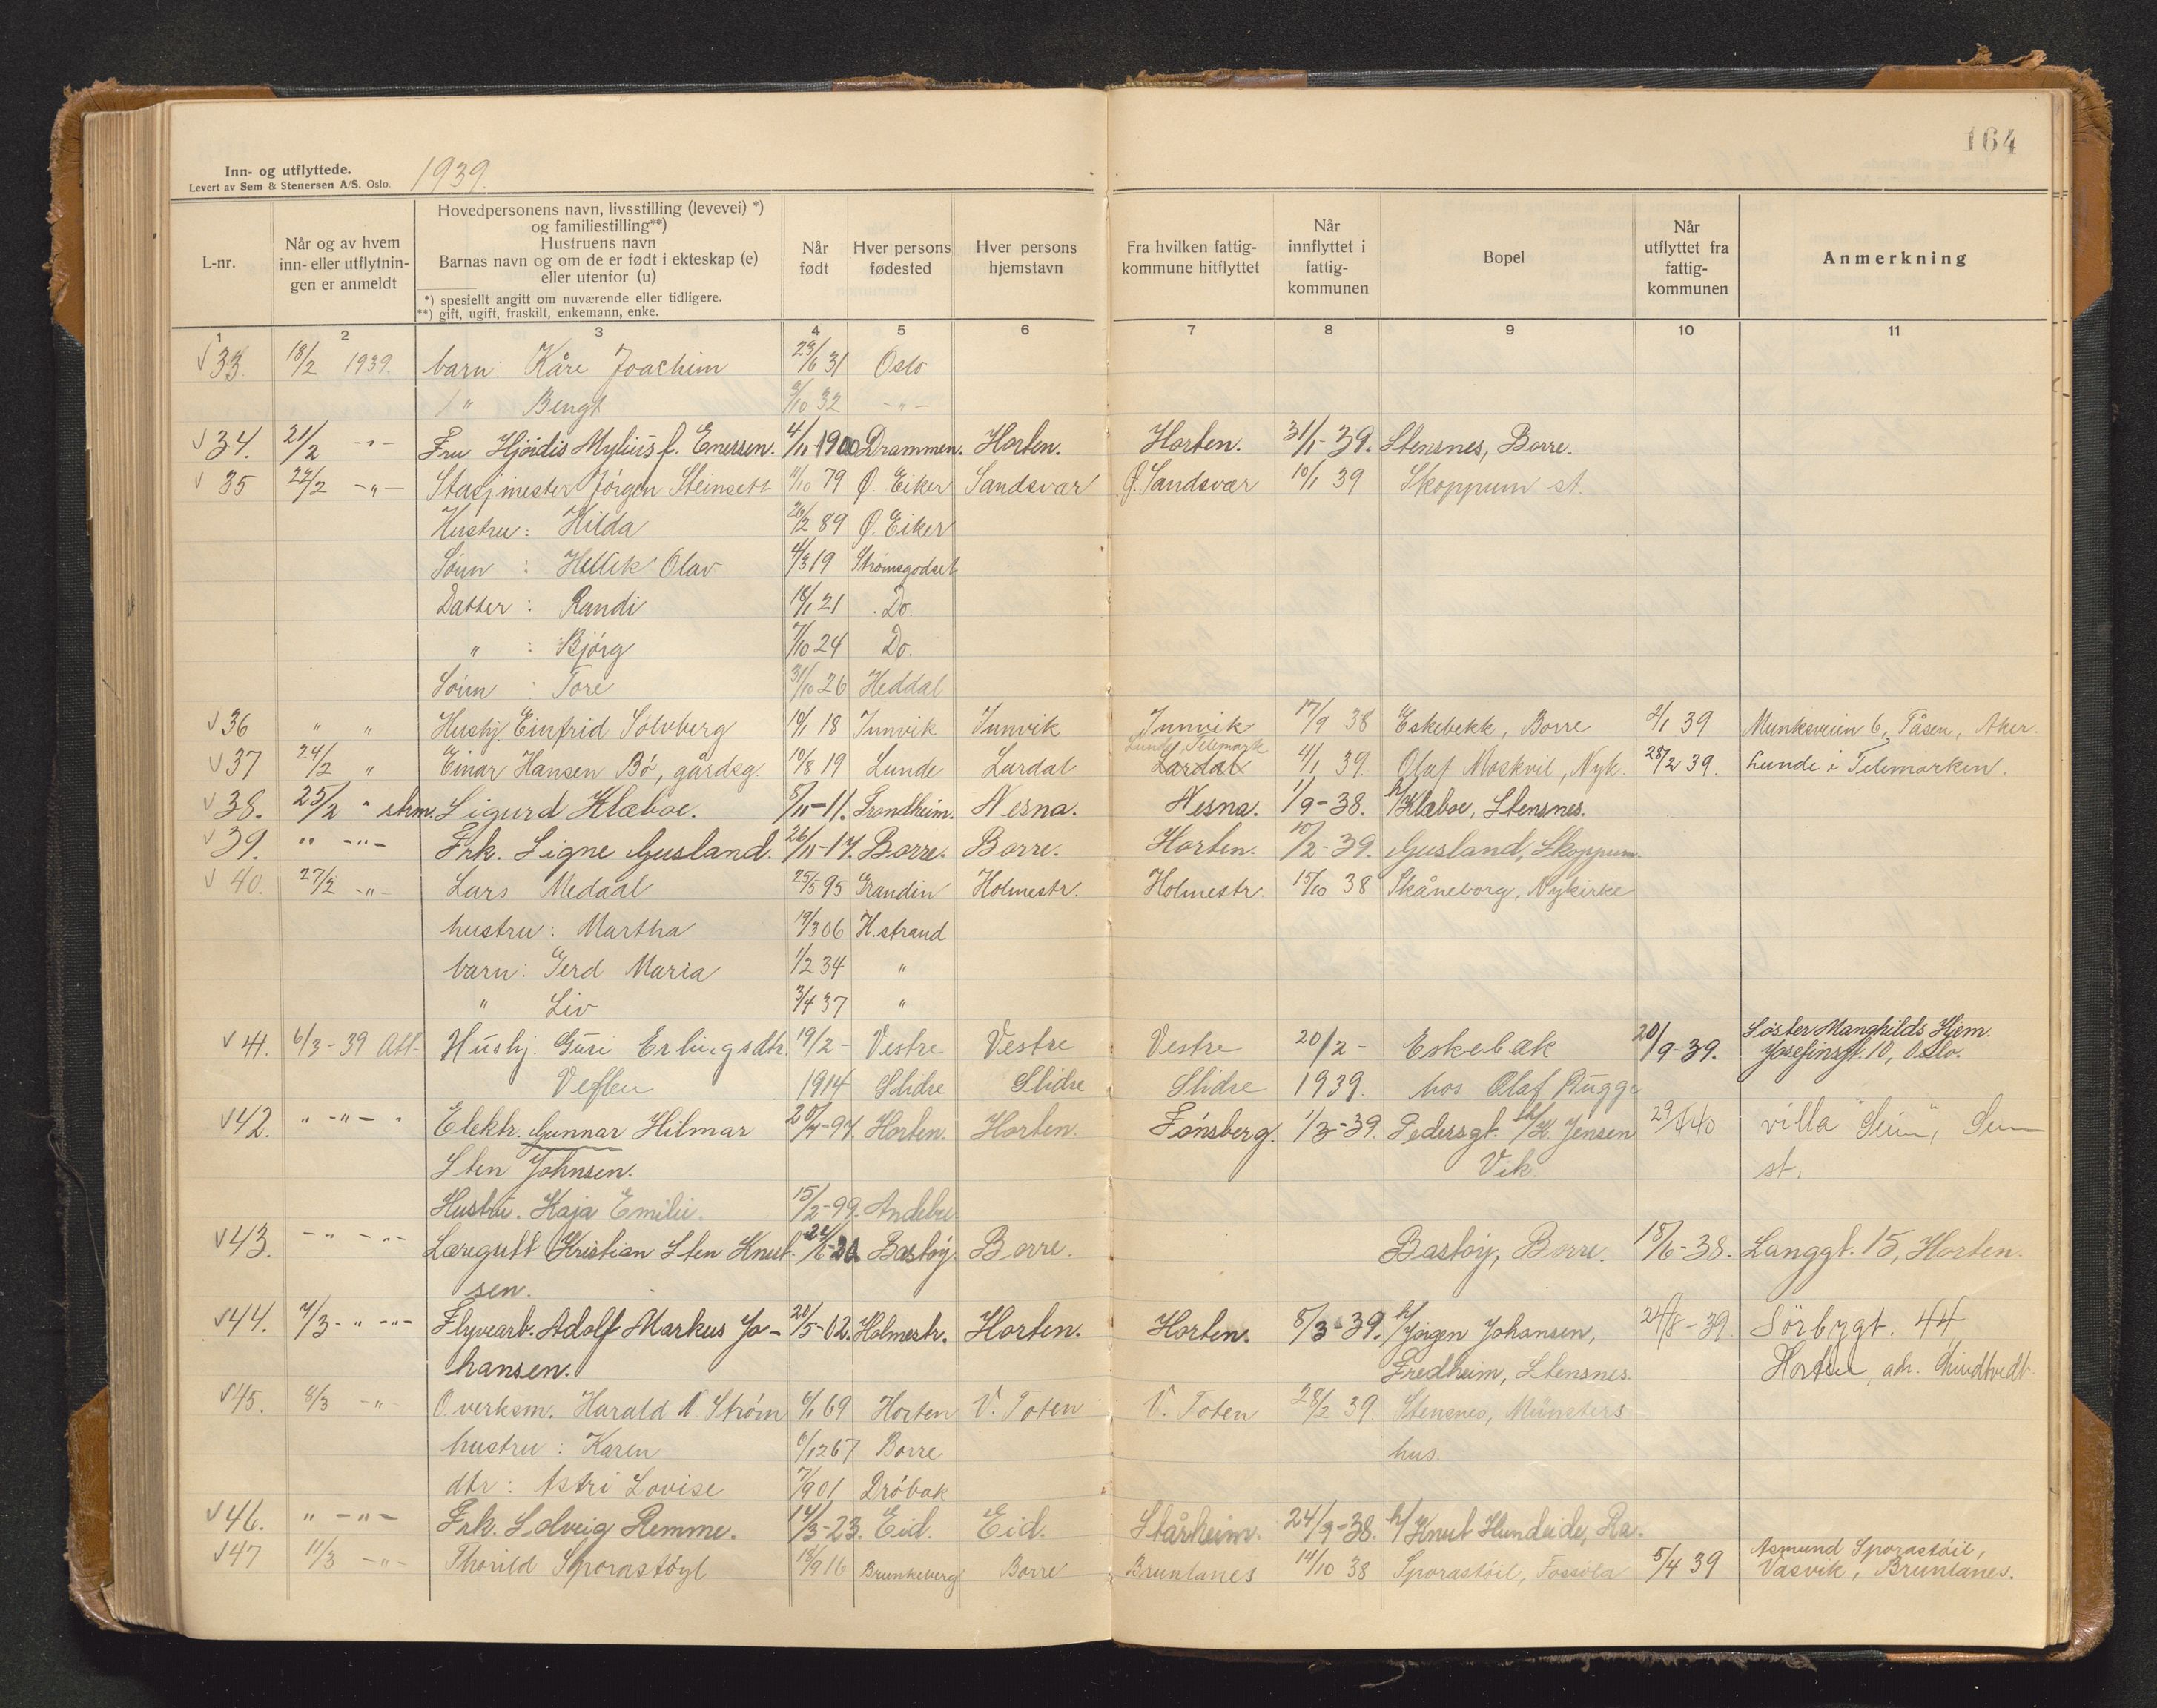 164
Inn- og utflyttede.
Levert av Sem & Stenersen A/S, Oslo. 1939.
L-nr.
Når og av hvem inn- eller utflytnin-gen er anmeldt
Hovedpersonens navn, livsstilling (levevei) *)
og familiestilling**)
Hustruens navn
Barnas navn og om de er født i ekteskap (e)
eller utenfor (u)
*) spesiellt angitt om nuværende eller tidligere.
**) gift, ugift, fraskilt, enkemann, enke.
Når født
Hver persons fødested
Hver persons hjemstavn
Fra hvilken fattig-kommune hitflyttet
Når innflyttet i fattig-kommunen
Bopel
Når utflyttet fra fattig-kommunen
Anmerkning
1 2 3 4 5 6 7 8 9 10 11
√ 33. 18/2 1939. barn: Kåre Joachim 23/6 31 Oslo
" Bengt 9/10 32 - " -
√ 34. 21/2 - " - Fru Hjördis Mylius f. Enersen. 4/11 1900 Drammen. Horten. Horten. 31/1-39. Stensnes, Borre.
√ 35 22/2 - " - Stasjmester Jörgen Steinsett 11/10 79 Ø. Eiker Sandsvær Ø. Sandsvær 10/1 39 Skoppum st.
Hustru: Hilda 26/2 89 Ø. Eiker
Sönn : Hellik Olav 4/3 19 Strømsgodset
Datter : Randi 18/1 21 Do.
" : Björg 7/10 24 Do.
Sönn : Tore 31/10 26 Heddal
√ 36 " " Hushj. Einfrid Solvberg 10/1 18 Innvik Innvik Innvik 17/9 38 Eskebekk, Borre 2/1 39 Munksveien 6, Tåsen, Aker.
√ 37 24/2 " Einar Hansen Bö, gårdsg. 10/8 19 Lunde Lardal Lardal Lunde, Telemark 4/1 39. Olaf Moskvil, Nyk. 28/2 39. Lunde i Telemarken.
√ 38. 25/2 " skm. Sigurd Klæboe. 5/11-11. Trondheim. Nesna. Nesna. 1/9-38. h/Klæboe, Stensnes.
√ 39. " - " - Frk. Signe Gusland. 26/11-17. Borre. Borre. Horten. 10/2-39. Gusland, Skoppum.
√ 40. 27/2 - " - Lars Medaal 25/5 95 Grandin Holmestr. Holmestr. 15/10 38 Skåneborg, Nykirke
hustru: Martha 19/3 06 H.strand
barn: Gerd Maria 1/2 34 "
" Liv 3/4 37 "
√ 41. 6/3-39 Att. Hushj. Guri Erlingsdtr. 19/2- Vestre Vestre Vestre 20/2- Eskebæk 20/9-39. Söster Manghilds Hjem. Josefinsgt. 10, Oslo.
Veflen 1914 Slidre Slidre Slidre 1939. hos Olaf Rugge
√ 42. " - " - " Elektr. Gunnar Hilmar 20/4-97. Horten. Horten. Tönsberg. 1/3-39. Pedersgt. h/K. Jensen 29/4 40 villa "Seim", Sem
Sten Johnsen. Vik. st.
Hustru. Kaja Emilie. 15/2-99. Andebu
√ 43. - " - " - Læregutt Kristian Sten Knut- 22/6-20. Bastöy. Borre. Bastöy, Borre. 18/6-38. Langgt. 15, Horten.
sen.
√ 44. 7/3- " - " - Flyvearb. Adolf Markus Jo- 20/5-02. Holmestr. Horten. Horten. 8/3-39. h/Jörgen Johansen, 24/8-39. Sörbygt. 44
hansen. Fredheim, Stensnes. Horten, adr. Lindtvedt.
√ 45. 8/3 - " - O.verksm. Harald A. Ström 6/1 69 Horten V. Toten V. Toten 28/2 39. Stensnes, Münsters
hustru : Karen 6/12 67 Borre hus.
dtr : Astri Lovise 7/9 01 Dröbak
√ 46. " - " - Frk. Solveig Remme. 14/3-23. Eid. Eid. Stårheim. 24/9-38. h/Knut Hundeide, Ra.
√ 47 11/3 - " - Thorild Sporastöyl 18/9 16 Brunkeberg Borre Brunlanes 14/10 38 Sporastöil, Fossola 5/4 39 Asmund Sporastöil,
Vasvik, Brunlanes.